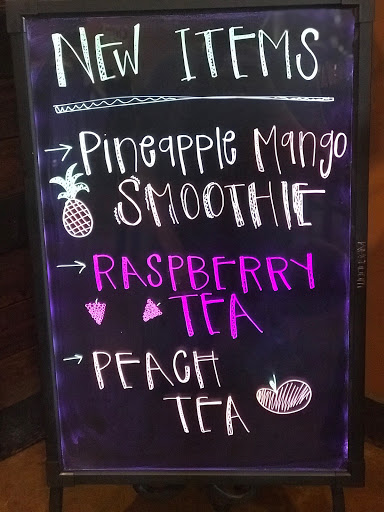 NEW ITEMS
→ Pineapple Mango
SMOOTHIE
→ RASPBERRY
TEA
→ PEACH
TEA